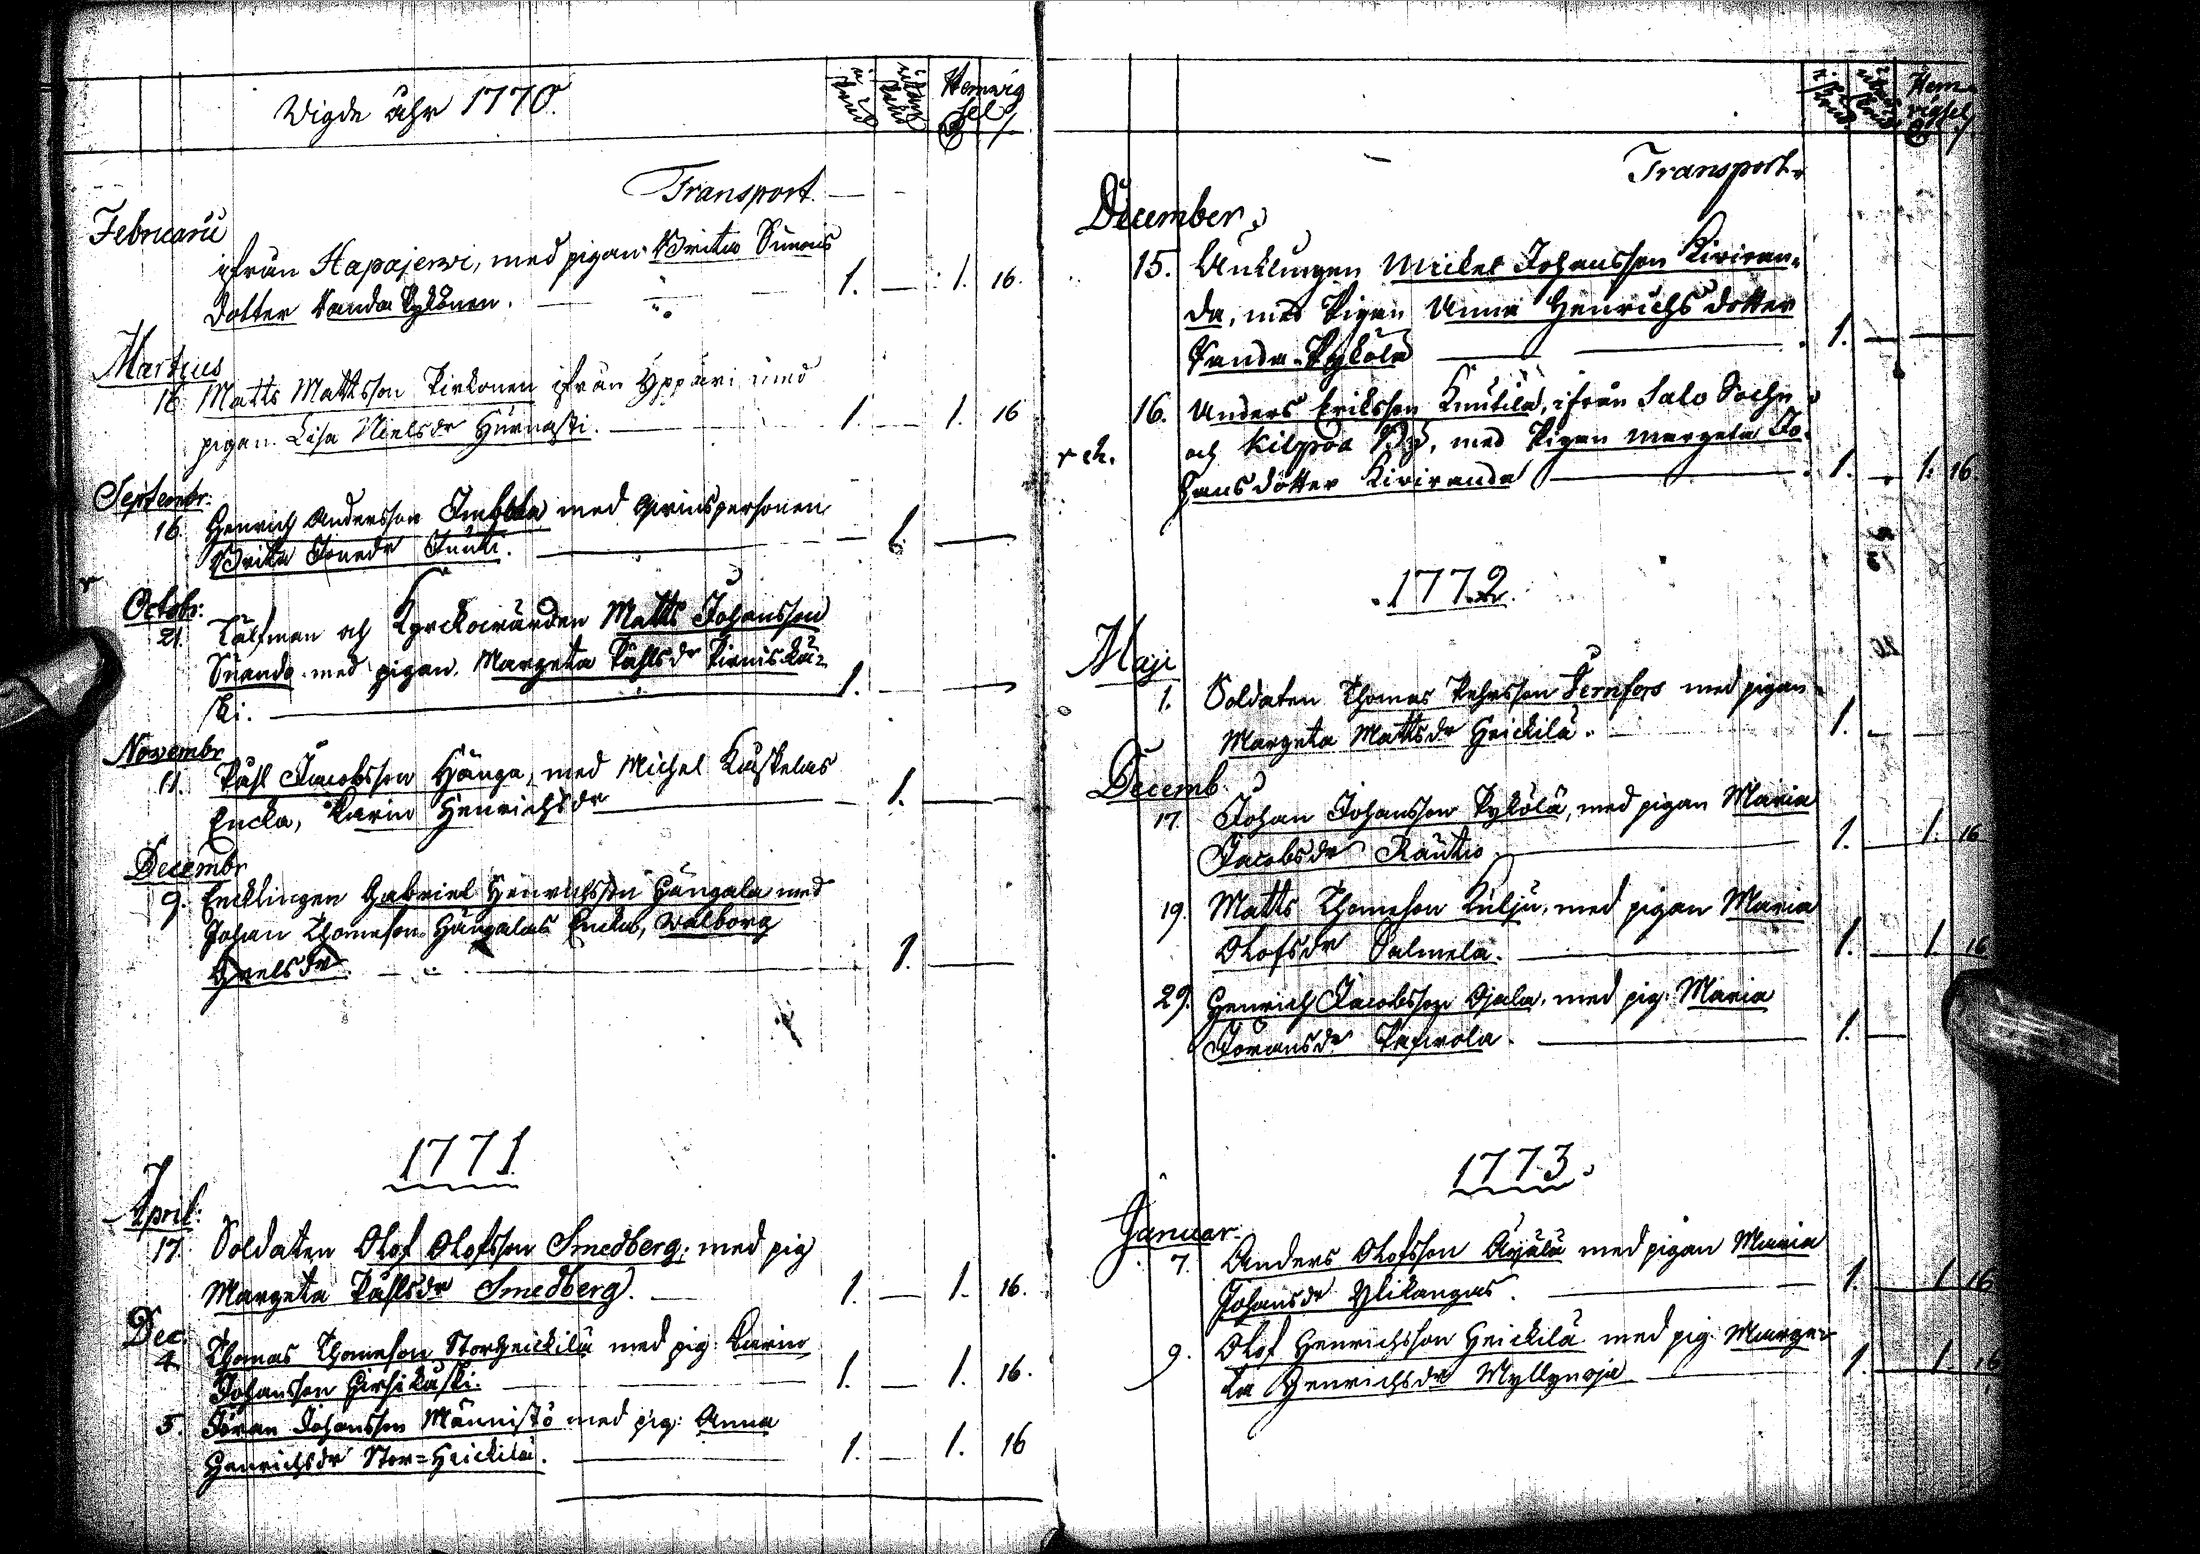 Vigde åhr 1770.
i Brud
utan Brud
Hemvig
sel
Transport.
Februarii
ifrån Hapajerwi, med pigan Brita Simons
dotter Vanda Pykönen. 1. — 1. 16.
Martius
16. Matts Mattsson Pirkonen ifrån Yppäri med
pigan Lisa Nielsdr Hurnasti. 1. 1. 16
Septembr:
16. Henrich Andersson Juhola med qvinspersonen
Brita Jönsdr Juuti. 1.
Octobr:
21. Tålfman och Kyrckowärden Matts Johansson
Suando med pigan Margeta Påhlsdr Pirniskå-
ski. 1.
Novembr
11. Påhl Jacobsson Hänga, med Michel Kåskelas
Encka, Karin Henrichsdr 1.
Decembr
9. Encklingen Gabriel Henrichsson Hängala med
Johan Thomeson Hängalas Encka, Walborg
Grelsdr. 1.
1771
April:
17. Soldaten Olof Olofsson Smedberg, med pig
Margeta Påhlsdr Smedberg. 1. — 1. 16.
Dec.
4. Thomas Thomeson Storheickilä med pig: Carin
Johansson Hirsikåski. 1. — 1. 16.
5. Jöran Johansson Männistö med pig: Anna
Henrichsdr Stor=Heickilä. 1. — 1. 16
Hem-
vigsel
Transport.
December
15. Änklingen Mickel Johansson Kiviran-
da, med Pigan Anna Henrichsdotter
Vanda-Pykölä 1.
16. Anders Eriksson Knutila, ifrån Salo Sochn
och Kilpoa By, med Pigan Margeta Jo-
hansdotter Kiviranda 1. 1. 16.
1772.
Maji
1. Soldaten Thomas Pehrsson Fernfors med pigan
Margeta Mattsdr Heickilä. 1.
Decemb.
17. Johan Johansson Pykölä, med pigan Maria
Jacobsdr Rautio. 1. 1. 16
19. Matts Thomeson Kulju, med pigan Maria
Olofsdr Salmela. 1. 1. 16
29. Henrich Jacobsson Ojala, med pig: Maria
Joransdr Pesirola. 1.
1773.
Januar.
7. Anders Olofsson Äyälä med pigan Maria
Johansdr Ylikangas. 1. 1. 16
9. Olof Henrichsson Heickilä med pig. Marge-
ta Henrichsdr Myllynoja 1. 1. 16